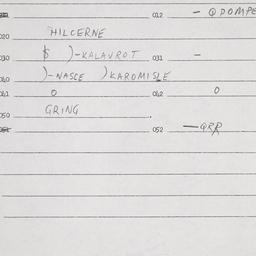 012 - QDOMPE
020 HILCERNE
030 $ )-KALAVROT 031 -
060 )-NASCE )KAROMISLE
061 0 062 0
050 GRING
052 -QRR